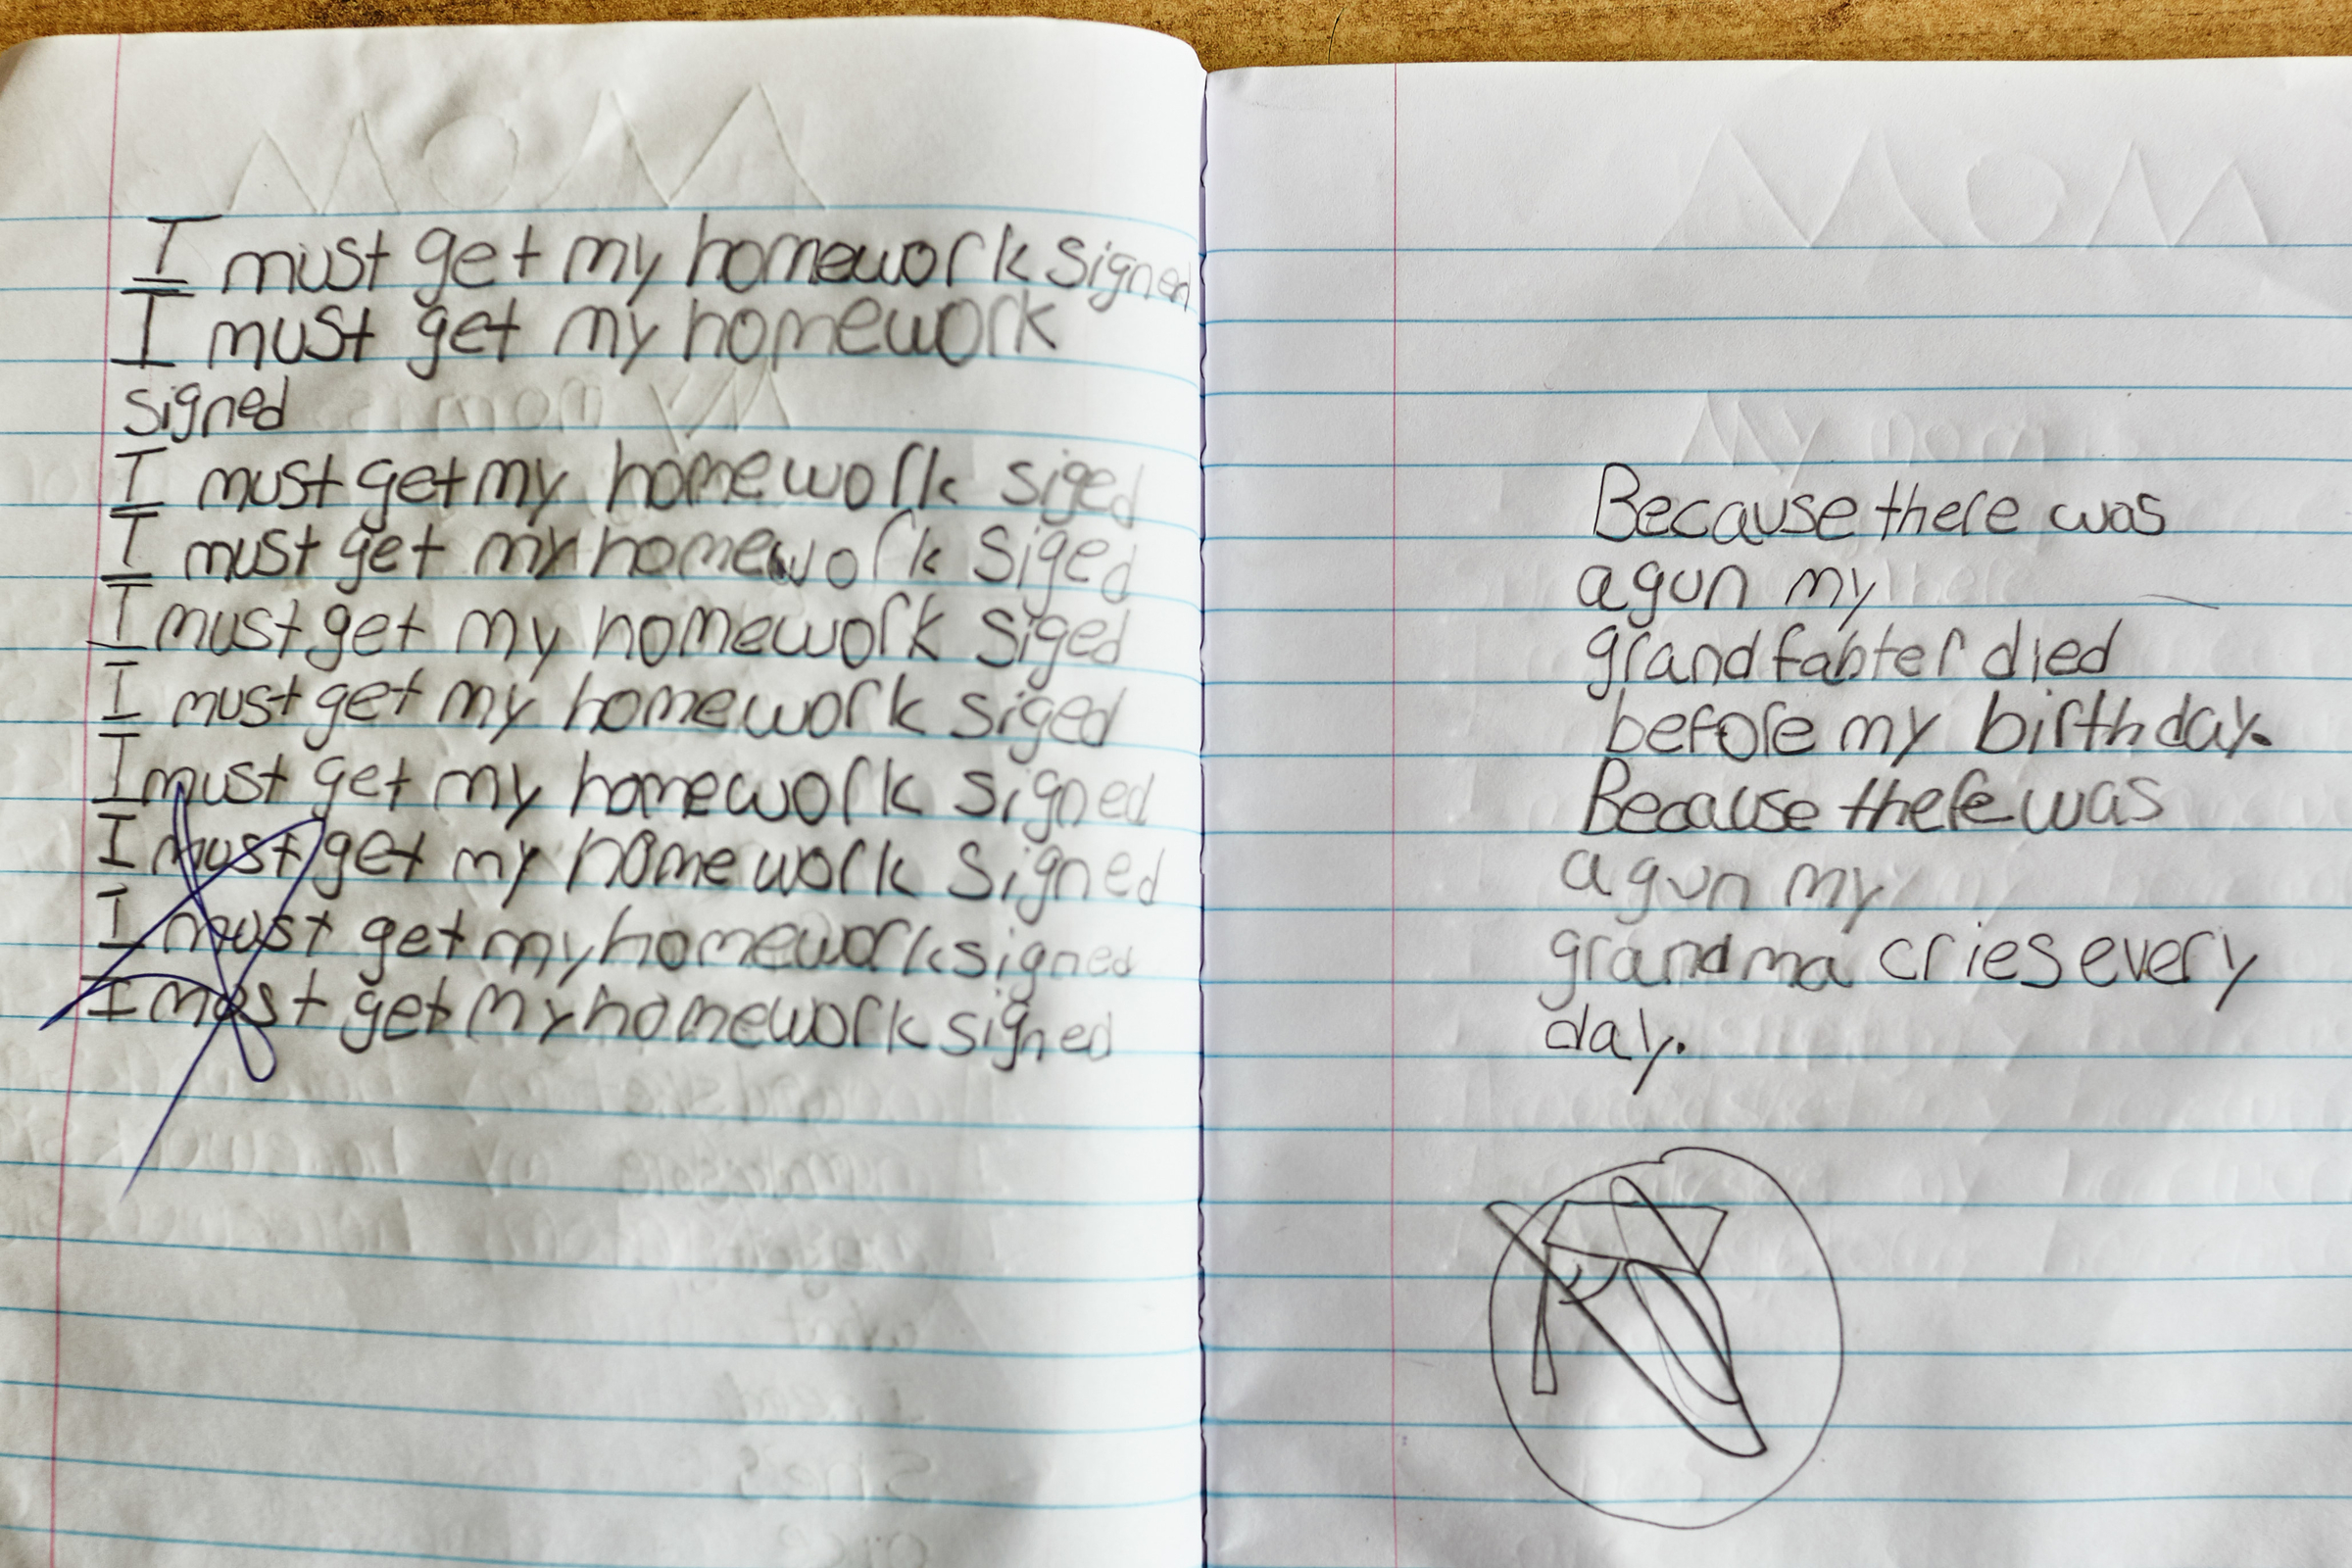 MOM
I must get my homework signed
I must get my homework
signed
I must get my homework siged
I must get my homework siged
I must get my homework siged
I must get my homework siged
I must get my homework signed
I must get my homework signed
I must get my homework signed
I most get my homework signed
MOM
My mom is
Because there was
a gun my
grandfahter died
before my birthday.
Because there was
a gun my
grandma cries every
day.